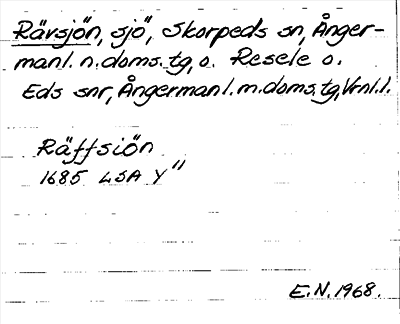 Rävsjön, sjö, Skorpeds sn, Ånger-
manl. n. doms. tg, o. Resele o.
Eds snr, Ångermanl. m. doms. tg, Vrnl. l.
Räffsiön
1685 LSA Y"
E.N. 1968.